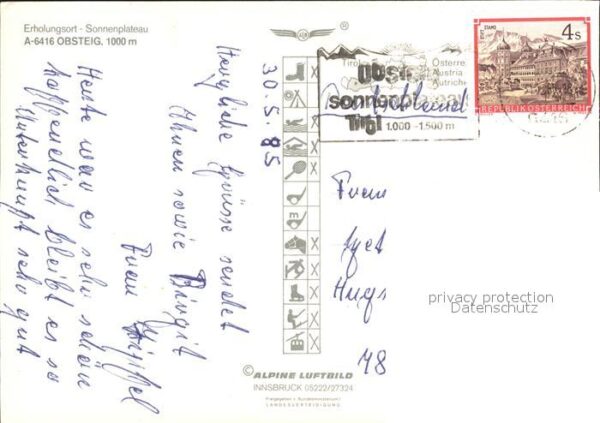 Erholungsort - Sonnenplateau
A-6416 OBSTEIG, 1000 m
30.5.85
Herzliche Grüsse sendet
Ihnen sowie Birgit
Frau
Heute war es sehr schön
hoffendlich bleibt es so
Unterkunft sehr gut
Tirol
Österre
Austria
Autriche
Obst
sonnenplateau
Tirol 1.000 - 1.500 m
Deutschland
STIFT STAMS
4 S
REPUBLIK ÖSTERREICH
Frau
48
privacy protection
Datenschutz
m
© ALPINE LUFTBILD
INNSBRUCK 05222/27324
Freigegeben v. Bundesministerium f.
LANDESVERTEIDIGUNG